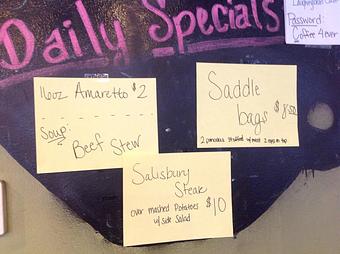 Daily Specials
Laughingboat Cafe
Password:
Coffee 4 ever
16oz Amaretto $2
Soup:
Beef Stew
Saddle
bags $8.50
2 pancakes stuffed w/ meat 2 eggs on top
Salisbury
Steak
over mashed Potatoes $10
w/ side Salad